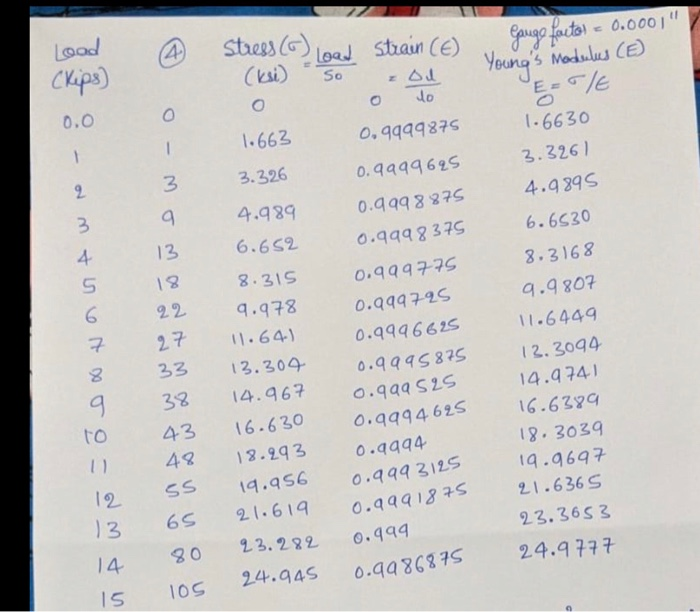 gauge factor = 0.0001"
Load (4) Stress (σ) = Load/So Strain (ε) Young's Modulus (E)
(Kips) (Ksi) = Δl/lo E = σ/ε
0.0 0 0 0 0
1 1 1.663 0.9999875 1.6630
2 3 3.326 0.9999625 3.3261
3 9 4.989 0.9998875 4.9895
4 13 6.652 0.9998375 6.6530
5 18 8.315 0.999775 8.3168
6 22 9.978 0.999725 9.9807
7 27 11.641 0.9996625 11.6449
8 33 13.304 0.9995875 13.3094
9 38 14.967 0.999525 14.9741
10 43 16.630 0.9994625 16.6389
11 48 18.293 0.9994 18.3039
12 55 19.956 0.9993125 19.9697
13 65 21.619 0.9991875 21.6365
14 80 23.282 0.999 23.3053
15 105 24.945 0.9986875 24.9777